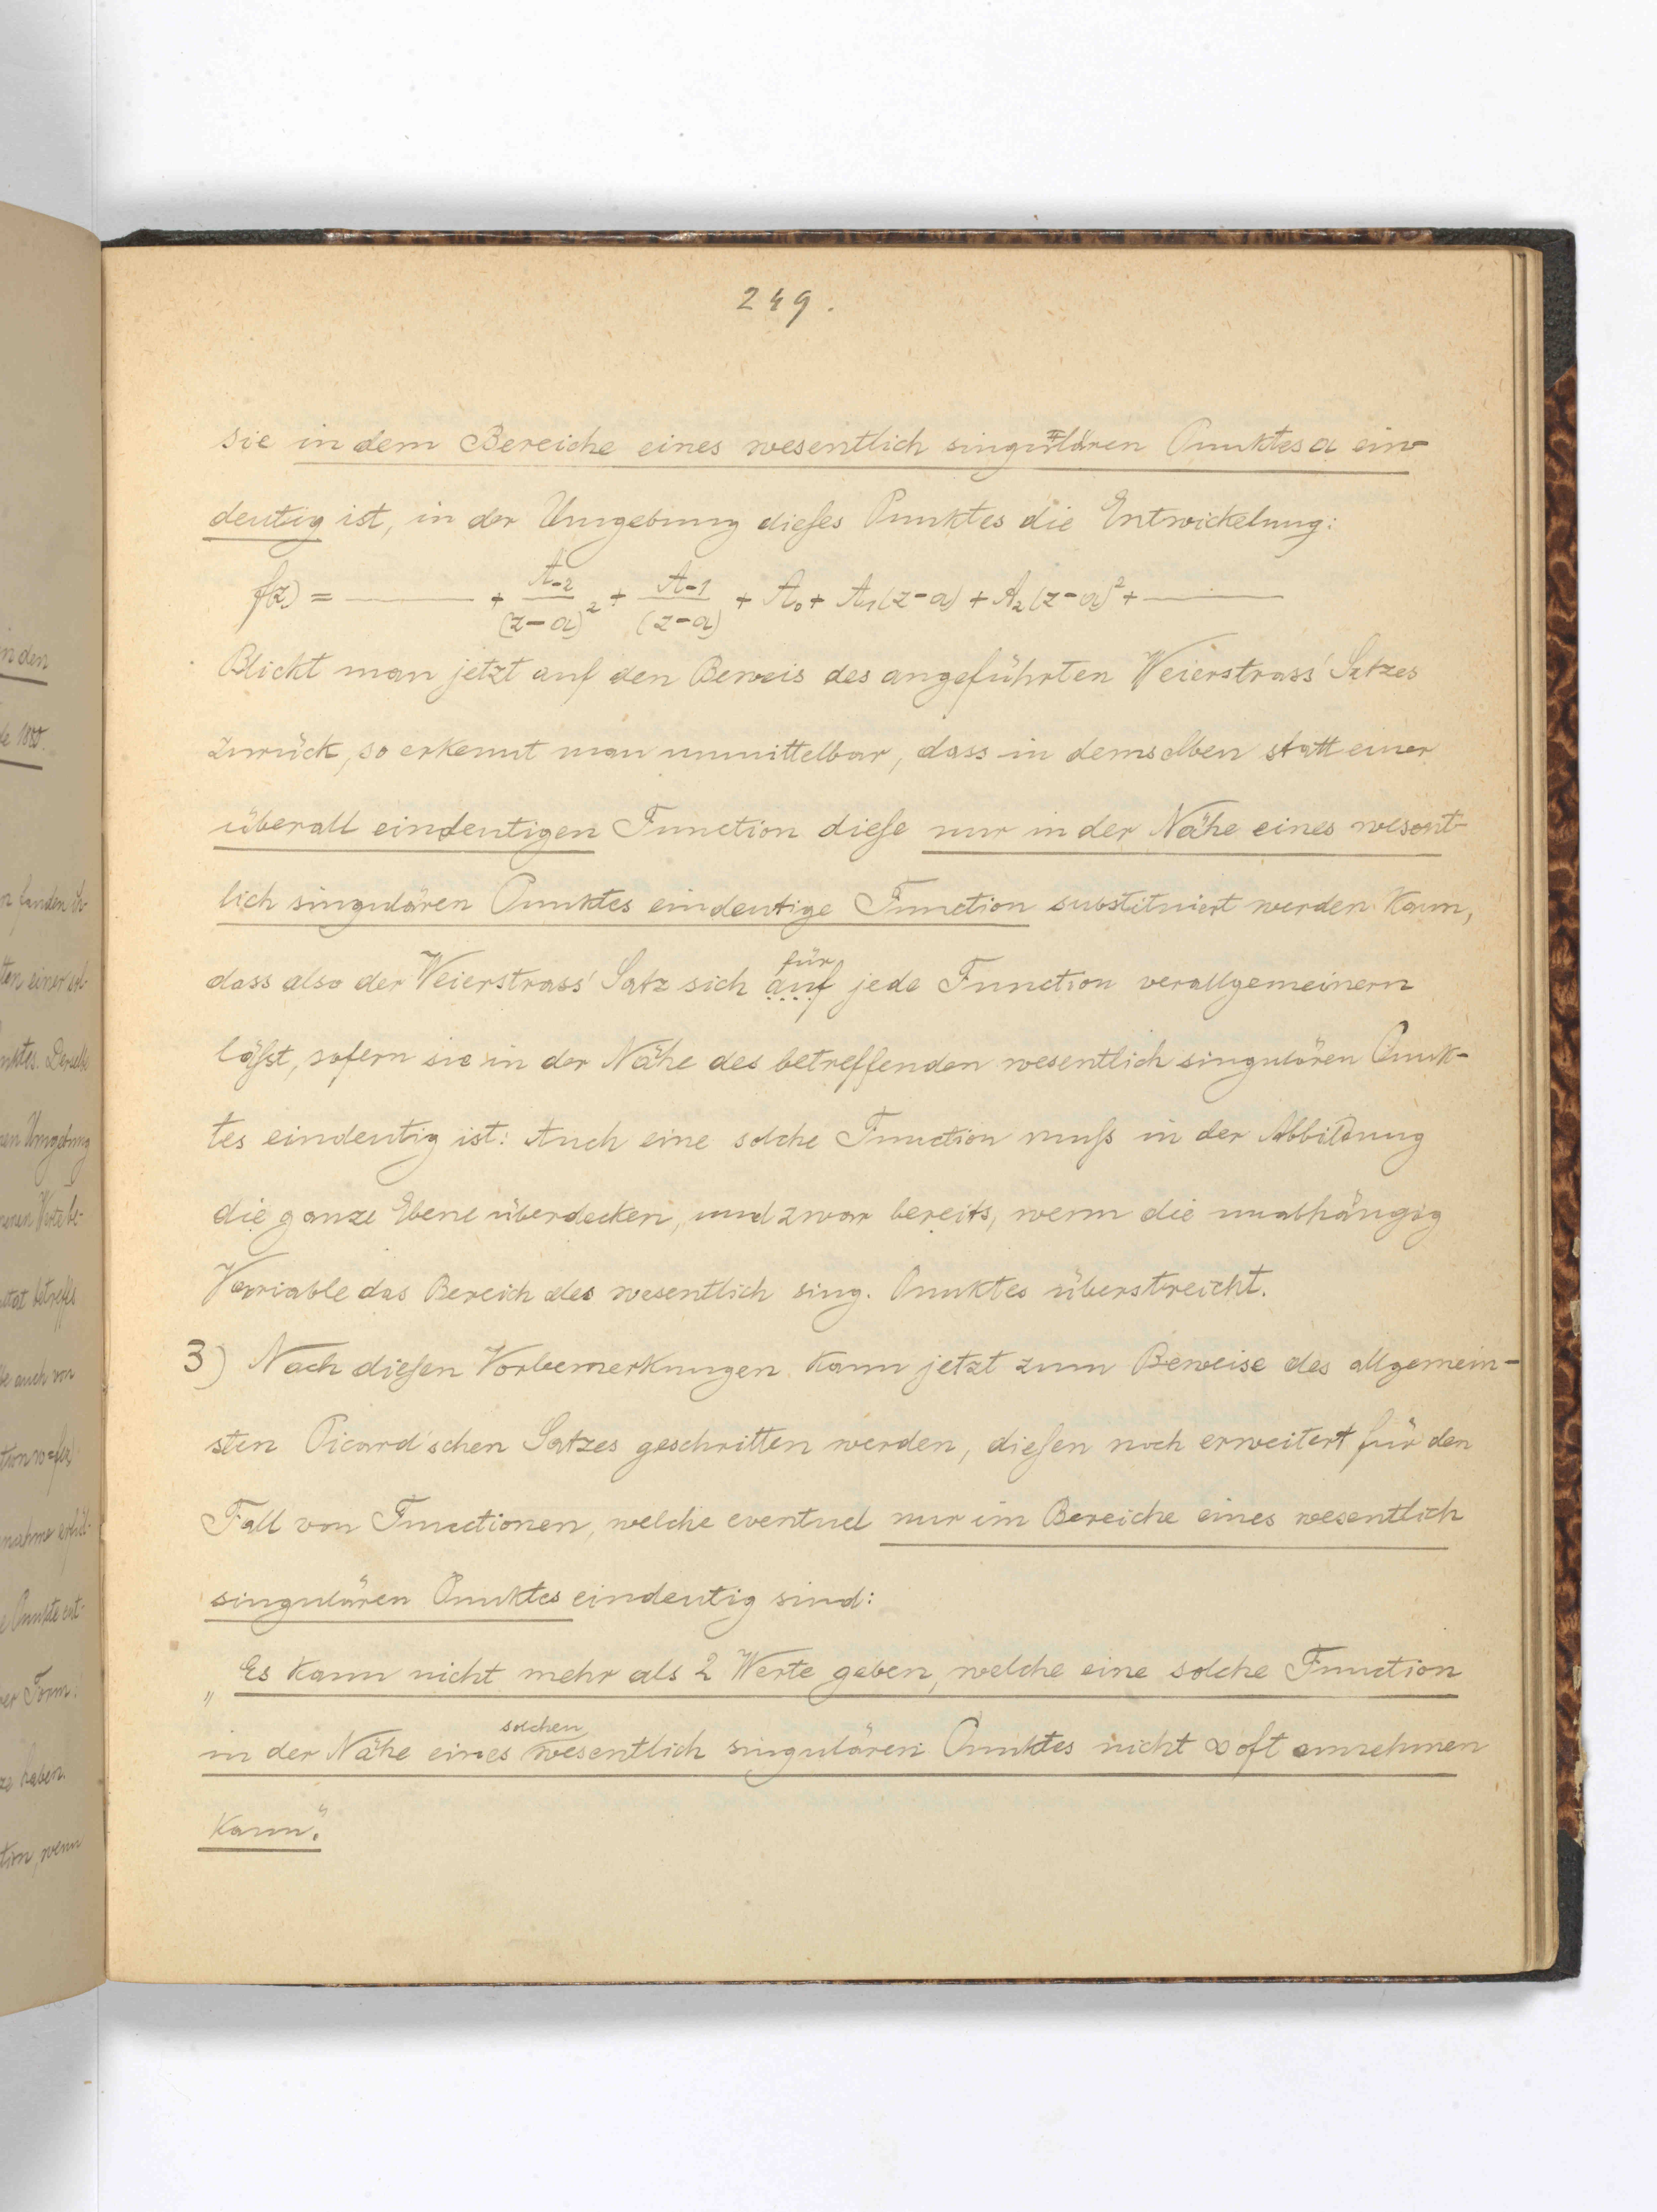 249.
sie in dem Bereiche eines wesentlich singulären Punktes a ein-
deutig ist, in der Umgebung dieses Punktes die Entwickelung:
f(z) = ——— + A-2/(z-a)² + A-1/(z-a) + A0 + A1(z-a) + A2(z-a)² + ———
Blickt man jetzt auf den Beweis des angeführten Weierstrass' Satzes
zurück, so erkennt man unmittelbar, dass in demselben statt einer
überall eindeutigen Function diese nur in der Nähe eines wesent-
lich singulären Punktes eindeutige Function substituiert werden kann,
für
dass also der Weierstrass' Satz sich auf jede Function verallgemeinern
läßt, sofern sie in der Nähe des betreffenden wesentlich singulären Punk-
tes eindeutig ist: Auch eine solche Function muß in der Abbildung
die ganze Ebene überdecken, und zwar bereits, wenn die unabhängig
Variable das Bereich des wesentlich sing. Punktes überstreicht.
3) Nach diesen Vorbemerkungen kann jetzt zum Beweise des allgemein-
sten Picard'schen Satzes geschritten werden, diesen noch erweitert für den
Fall von Functionen, welche eventuel nur im Bereiche eines wesentlich
singulären Punktes eindeutig sind:
„Es kann nicht mehr als 2 Werte geben, welche eine solche Function
solchen
in der Nähe eines wesentlich singulären Punktes nicht ∞ oft annehmen
kann."
in den
de 1880.